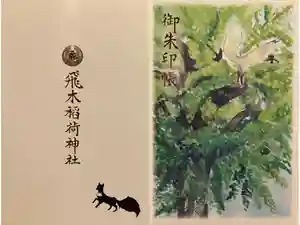 御朱印帳
飛木稲荷神社